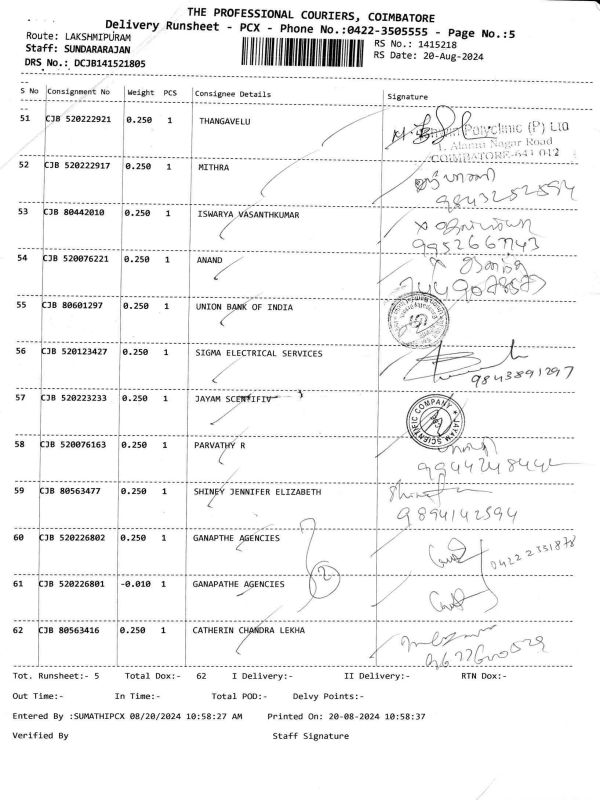 THE PROFESSIONAL COURIERS, COIMBATORE
Delivery Runsheet - PCX - Phone No.:0422-3505555 - Page No.:5
Route: LAKSHMIPURAM
Staff: SUNDARARAJAN
DRS No.: DCJB141521805
RS No.: 1415218
RS Date: 20-Aug-2024
S No Consignment No Weight PCS Consignee Details Signature
51 CJB 520222921 0.250 1 THANGAVELU
Polyclinic (P) Ltd
1, Alamu Nagar Road
COIMBATORE-641 012
52 CJB 520222917 0.250 1 MITHRA
9843252594
53 CJB 80442010 0.250 1 ISWARYA VASANTHKUMAR
54 CJB 520076221 0.250 1 ANAND
55 CJB 80601297 0.250 1 UNION BANK OF INDIA
56 CJB 520123427 0.250 1 SIGMA ELECTRICAL SERVICES
9843891297
57 CJB 520223233 0.250 1 JAYAM SCENTIFIV
JAYAM SCIENTIFIC COMPANY
58 CJB 520076163 0.250 1 PARVATHY R
59 CJB 80563477 0.250 1 SHINEY JENNIFER ELIZABETH
9894142594
60 CJB 520226802 0.250 1 GANAPTHE AGENCIES
0422 2331878
61 CJB 520226801 -0.010 1 GANAPATHE AGENCIES
2
62 CJB 80563416 0.250 1 CATHERIN CHANDRA LEKHA
Tot. Runsheet:- 5 Total Dox:- 62 I Delivery:- II Delivery:- RTN Dox:-
Out Time:- In Time:- Total POD:- Delvy Points:-
Entered By :SUMATHIPCX 08/20/2024 10:58:27 AM Printed On: 20-08-2024 10:58:37
Verified By Staff Signature